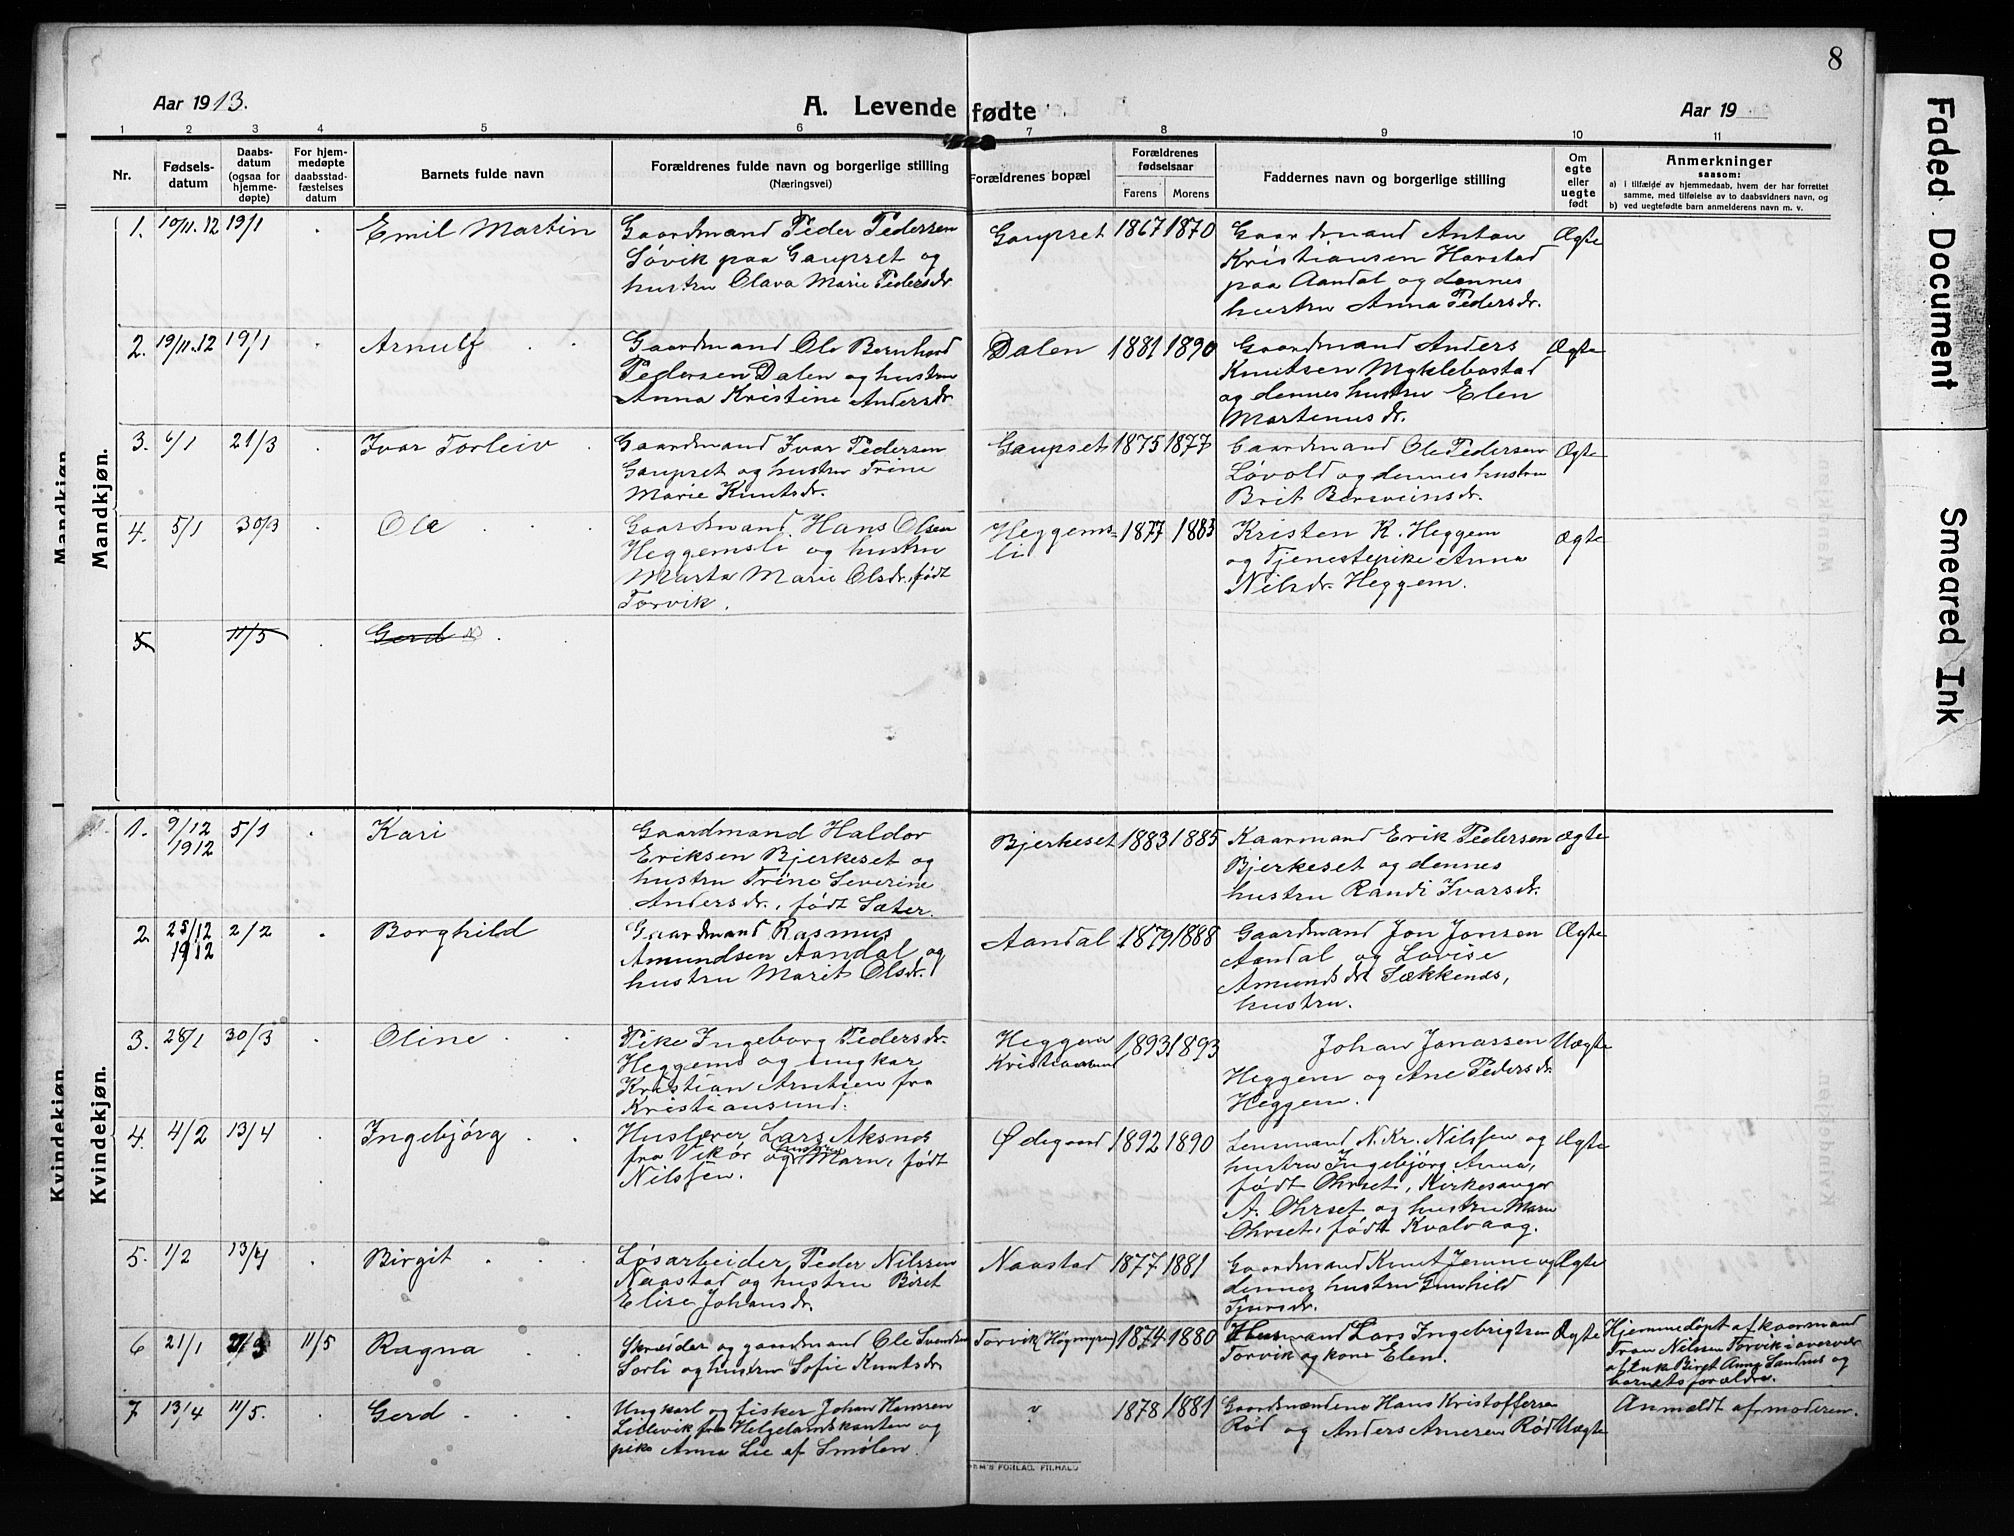 8
Aar 1913.
A. Levende fødte
Aar 19
1 2 3 4 5 6 7 8 9 10 11
Nr.
Fødsels-
datum
Daabs-
datum
(ogsaa for
hjemme-
døpte)
For hjem-
medøpte
daabsstad-
fæstelses
datum
Barnets fulde navn
Forældrenes fulde navn og borgerlige stilling
(Næringsvei)
Forældrenes bopæl
Forældrenes
fødselsaar
Farens Morens
Faddernes navn og borgerlige stilling
Om
egte
eller
uegte
født
Anmerkninger
saasom:
a) i tilfælde av hjemmedaab, hvem der har forrettet
samme, med tilføielse av to daabsvidners navn, og
b) ved uegtefødte barn anmelderens navn m. v.
Mandkjøn.
Mandkjøn.
1. 10/11.12 19/1 Emil Martin
Gaardmand Peder Pedersen
Søvik paa Gaupset og
hustru Olava Marie Pedersdr.
Gaupset 1867 1870
Gaardmand Anton
Kristiansen Harstad
paa Aandal og dennes
hustru Anna Pedersdr.
Ægte
2. 19/11.12 19/1 Arnulf
Gaardmand Ole Bernhard
Pedersen Dalen og hustru
Anna Kristine Andersdr
Dalen 1881 1890
Gaardmand Anders
Knutsen Myklebostad
og dennes hustru Elen
Martinusdr.
Ægte
3. 6/1 21/3 Ivar Torleiv
Gaardmand Ivar Pedersen
Gaupset og hustru Trine
Marie Knutsdr.
Gaupset 1875 1877
Gaardmand Ole Pedersen
Løvold og dennes hustru
Brit Bersveinsdr.
Ægte
4. 5/1 30/3 Ole
Gaardmand Hans Olsen
Heggemsli og hustru
Marta Marie Olsdr. født
Torvik.
Heggems-
li
1877 1883
Kristen K. Heggem
og Tjenestepike Anna
Nilsdr. Heggem.
Ægte
5 11/5 Gerd
Kvindekjøn.
Kvindekjøn.
1. 9/12
1912
5/1 Kari
Gaardmand Haldor
Eriksen Bjerkeset og
hustru Trine Severine
Andersdr., født Sæter.
Bjerkeset 1883 1885
Kaarmand Erik Pedersen
Bjerkeset og dennes
hustru Randi Ivarsdr.
Ægte
2. 25/12
1912
2/2 Borghild
Gaardmand Rasmus
Amundsen Aandal og
hustru Marit Olsdr.
Aandal 1879 1888
Gaardmand Jon Jonsen
Aandal og Lovise
Amundsdr Sækkenes,
hustru.
Ægte
3. 28/1 30/3 Oline
Pike Ingeborg Pedersdr.
Heggems og ungkar
Kristian Arntsen fra
Kristiansund.
Heggem
Kristiansund
1893 1893
Johan Jonassen
Heggem og Ane Pedersdr.
Heggem.
Uægte
4. 4/2 13/4 Ingebjörg
Huslærer Lars Aksnes
fra Vikør og hustru Marn, født
Nilssen.
Ødegaard 1892 1890
Lensmand N. Kr. Nilssen og
hustru Ingebjörg Anna,
født Ohrset, Kirkesanger
A. Ohrset og hustru Marn
Ohrset, født Kvalvaag.
Ægte
5. 1/2 13/4 Birgit
Løsarbeider Peder Nilssen
Naastad og hustru Beret
Elise Johansdr.
Naastad 1877 1881
Gaardmand Knut Jemne og
dennes hustru Gunhild
Sjursdr.
Ægte
6 21/1 11/5 Ragna
Skræder og gaardmand Ole Svendsen
Sorli og hustru Sofie Knutsdr
Torvik (Høgmyren) 1874 1880
Husmand Lars Ingebrigtsen
Torvik og kone Elen.
Ægte
Hjemmedøpt af kaarmand
Tron Nilssen Torvik i overvær
af Enke Biret Anna Sandnes og
barnets forældre.
7. 13/4 11/5. Gerd
Ungkarl og fisker Johan Hanssen
Lillevik fra Helgelandskanten og
pike Anna Lie af Smølen.
1878 1881
Gaardmændene Hans Kristoffersen
Rød og Anders Arnesen Rød
Uægte
Anmældt af moderen.
FORLAG.
Faded Document
Smeared Ink